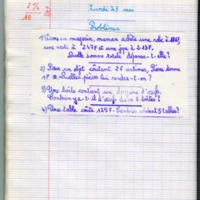 Lundi 23 mai
Problèmes
1) Dans un magasin, maman achète une robe à
une veste à 247F et une jupe à
Quelle somme totale dépense-t-elle?
2) Pour un objet coûtant 26 centimes, Pierre donne
1F. Quelles pièces lui rendra-t-on?
3) Une boîte contient une douzaine d'œufs.
Combien y a-t-il d'œufs dans boîtes?
4) Une table coûte 125F. Combien coûtent 5 tables?